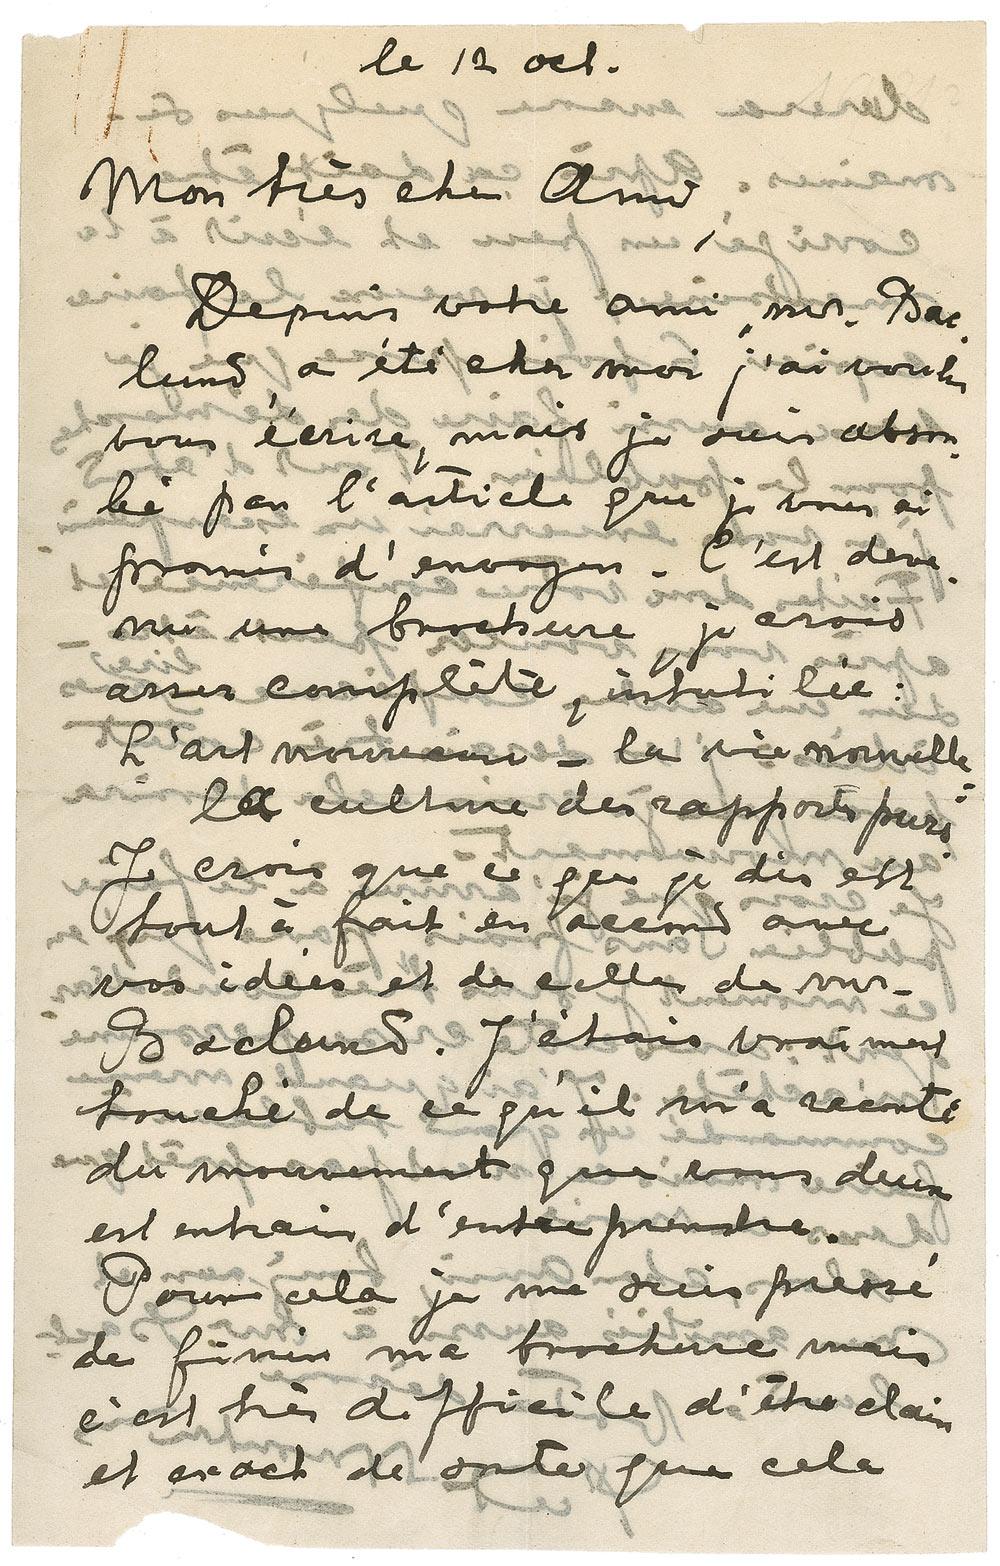 le 12 oct.
Mon très cher Ami,
Depuis votre ami, mr. Bac-
lund a été chez moi j'ai voulu
vous écrire, mais je suis absor-
bé par l'article que je vous ai
promis d'envoyer. C'est deve-
nu une brochure, je crois
assez complète, intutilée:
L'art nouveau - la vie nouvelle =
la culture des rapports purs.
Je crois que ce que je dis est
tout à fait en accord avec
vos idées et de celles de mr.
Baclund. J'étais vraiment
touché de ce qu'il m'a raconté
du mouvement que vous deux
est entrain d'entreprendre.
Pour cela je me suis pressé
de finir ma brochure mais
c'est très difficile d'être clair
et exact de sorte que cela